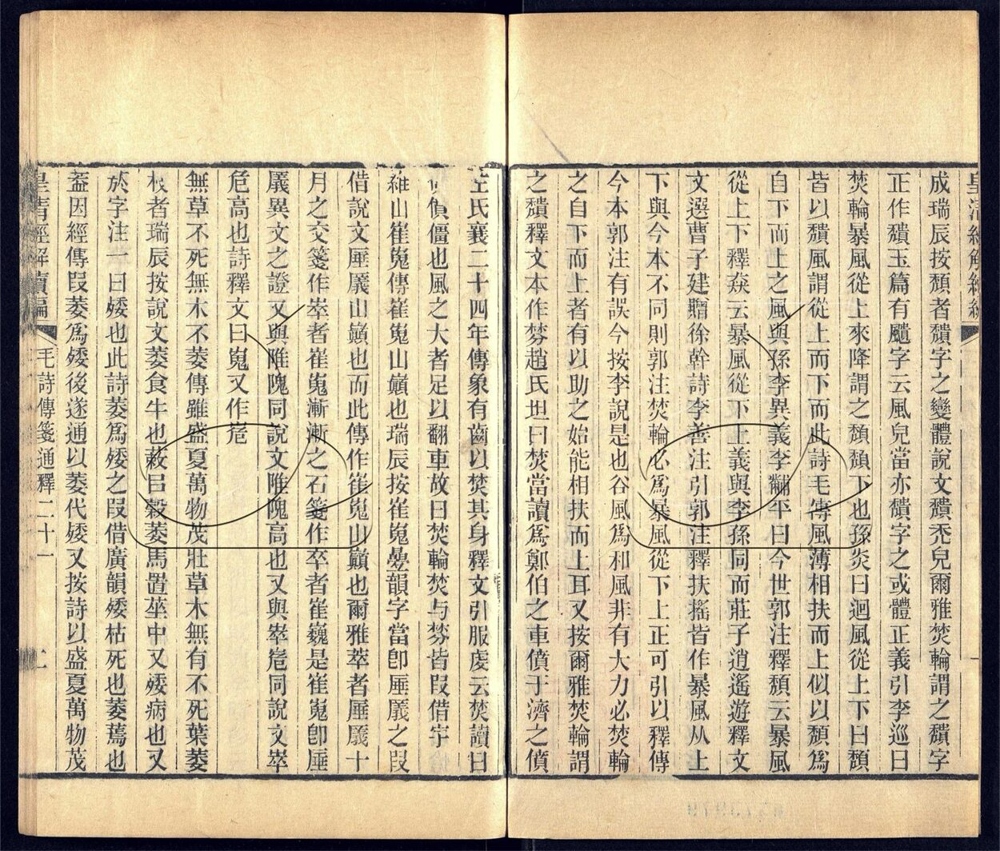 成瑞辰按頹者穨字之變體說文穨禿皃爾雅焚輪謂之穨字
正作穨玉篇有䫋字云風皃當亦穨字之或體正義引李巡曰
焚輪暴風從上來降謂之頹頹下也孫炎曰迴風從上下曰頹
皆以穨風謂從上而下而此詩毛傳風薄相扶而上似以頹爲
自下而上之風與孫李異義李黼平曰今世郭注釋頹云暴風
從上下釋猋云暴風從下上義與李孫同而莊子逍遙遊釋文
文選曹子建贈徐幹詩李善注引郭注釋扶搖皆作暴風从上
下與今本不同則郭注焚輪必爲暴風從下上正可引以釋傳
今本郭注有誤今按李說是也谷風爲和風非有大力必焚輪
之自下而上者有以助之始能相扶而上耳又按爾雅焚輪謂
之穨釋文本作棼趙氏坦曰焚當讀爲鄭伯之車僨于濟之僨
氏襄二十四年傳象有齒以焚其身釋文引服虔云焚讀曰
僨僵也風之大者足以翻車故曰焚輪焚与棼皆叚借字
維山崔嵬傳崔嵬山巔也瑞辰按崔嵬㬪韻字當卽厜㕒之叚
借說文厜㕒山顚也而此傳作崔嵬山巔也爾雅萃者厜㕒十
月之交箋作崒者崔嵬漸漸之石箋作卒者崔巍是崔嵬卽厜
㕒異文之證又與陮隗同說文陮隗高也又與崒峞同說文崒
危高也詩釋文曰嵬又作峞
無草不死無木不萎傳雖盛夏萬物茂壯草木無有不死葉萎
枝者瑞辰按說文萎食牛也䔩㠯穀萎馬置莝中又矮病也又
於字注一曰矮也此詩萎爲矮之叚借廣韻矮枯死也萎蔫也
蓋因經傳叚萎爲矮後遂通以萎代矮又按詩以盛夏萬物茂
皇淸經解續編
毛詩傳箋通釋二十一
二